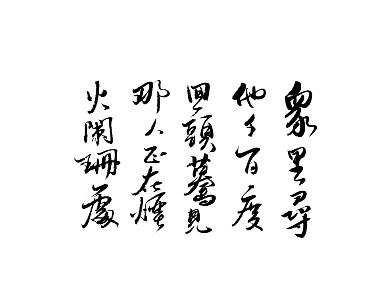 衆里尋
他千百度
回頭驀見
那人正在燈
火闌珊處